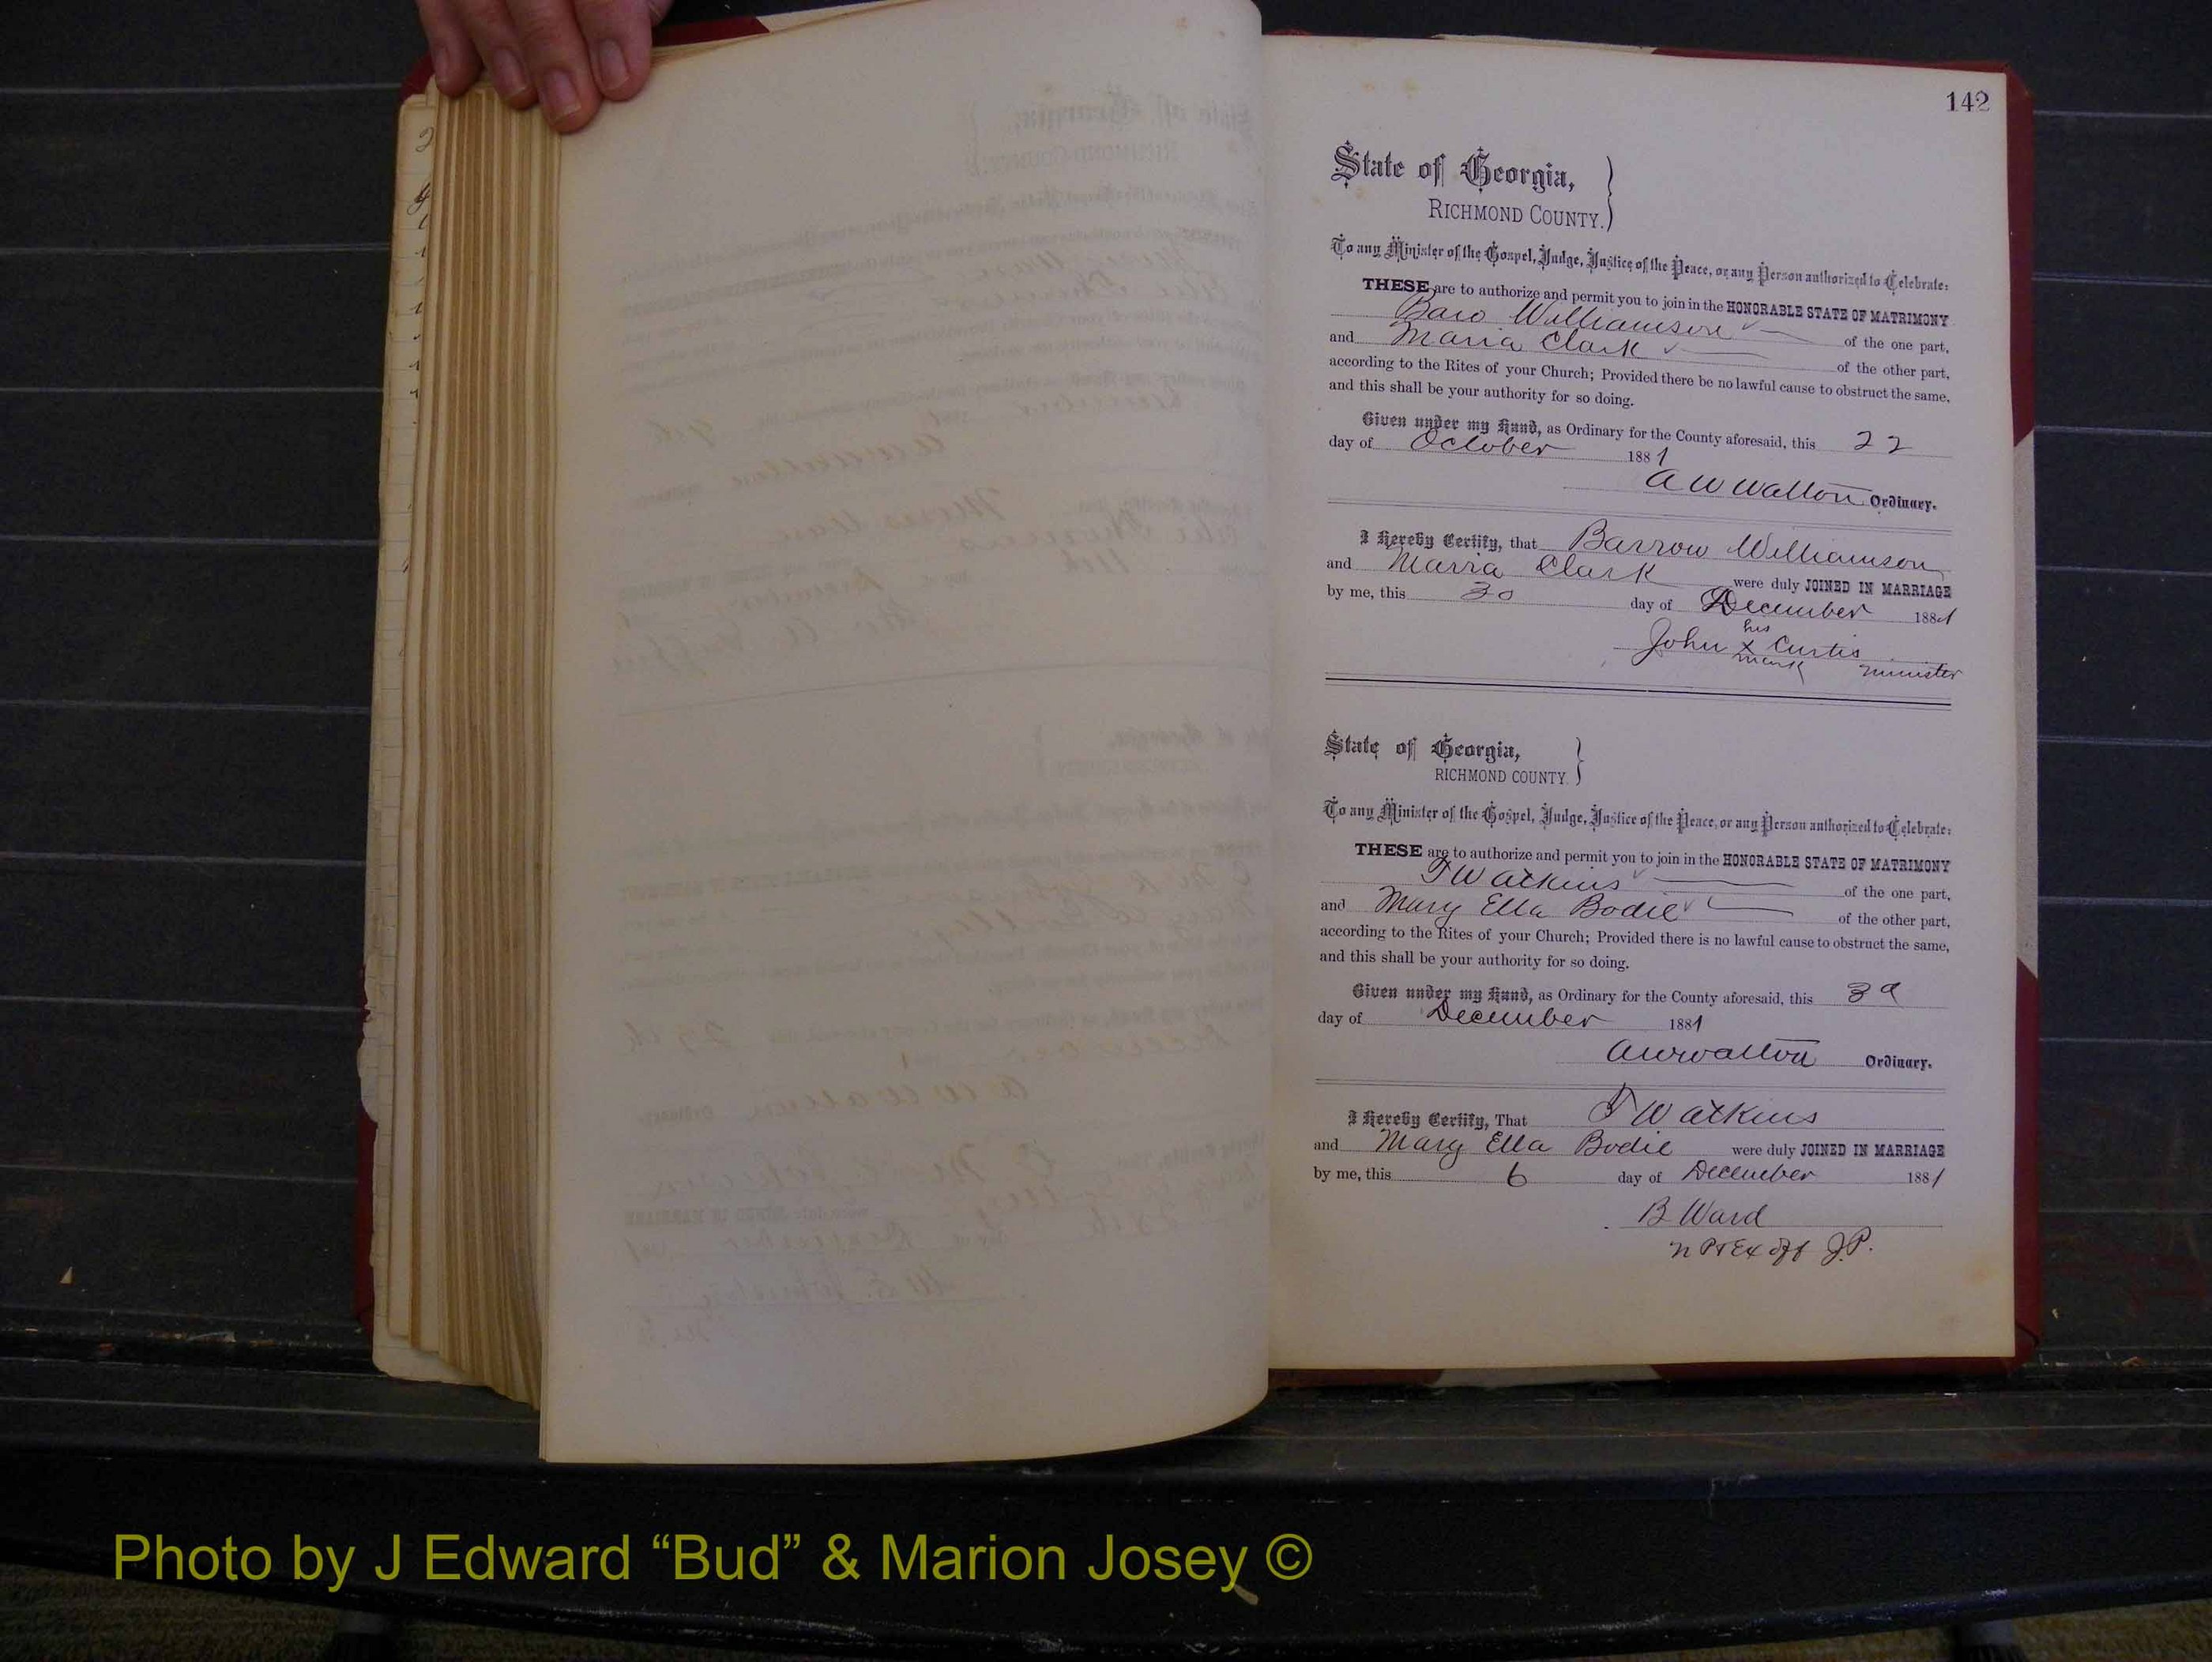 142
State of Georgia,
RICHMOND COUNTY.
To any Minister of the Gospel, Judge, Justice of the Peace, or any Person authorized to Celebrate:
THESE are to authorize and permit you to join in the HONORABLE STATE OF MATRIMONY
Baro Williamson of the one part,
and Maria Clark of the other part,
according to the Rites of your Church; Provided there be no lawful cause to obstruct the same,
and this shall be your authority for so doing.
Given under my Hand, as Ordinary for the County aforesaid, this 22
day of October 1881
A W Walton Ordinary.
I Hereby Certify, that Barrow Williamson
and Maria Clark were duly JOINED IN MARRIAGE
by me, this 30 day of December 1881
his
John x Curtis
mark minister
State of Georgia,
RICHMOND COUNTY.
To any Minister of the Gospel, Judge, Justice of the Peace, or any Person authorized to Celebrate:
THESE are to authorize and permit you to join in the HONORABLE STATE OF MATRIMONY
T Watkins of the one part,
and Mary Ella Bodie of the other part,
according to the Rites of your Church; Provided there is no lawful cause to obstruct the same,
and this shall be your authority for so doing.
Given under my Hand, as Ordinary for the County aforesaid, this 3d
day of December 1881
A W Walton Ordinary.
I Hereby Certify, That T Watkins
and Mary Ella Bodie were duly JOINED IN MARRIAGE
by me, this 6 day of December 1881
B Ward
N P & Ex off J.P.
Photo by J Edward “Bud” & Marion Josey ©